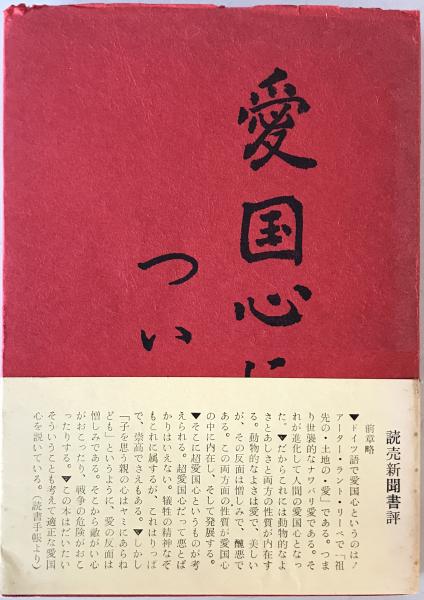 愛国心に
つい
読売新聞書評
前章略
▼ドイツ語で愛国心というのはフ
アーター・ラント・リーベで「祖
先の・土地の・愛」である。つま
り世襲的なナワバリ愛である。そ
れが進化して人間の愛国心となっ
た。▼だからこれには動物的なよ
さとあしさと両方の性質が内在す
る。動物的なよさは愛で、美しい
が、その反面は憎しみで、醜悪で
ある。この両方面の性質が愛国心
の中に内在し、そして発展する。
▼そこに超愛国心というものが考
えられる。超愛国心だって悪とば
かりはいえない。犠牲の精神なぞ
もこれに属するが、これはりっぱ
で、崇高でさえもある。▼しかし
「子を思う親の心はヤミにあらね
ども」というように、愛の反面は
憎しみである。そこから敵がい心
がおこったり、戦争の危険がおこ
ったりする。▼この本はだいたい
そういうことも考えて適正な愛国
心を説いている。（読書手帳より）